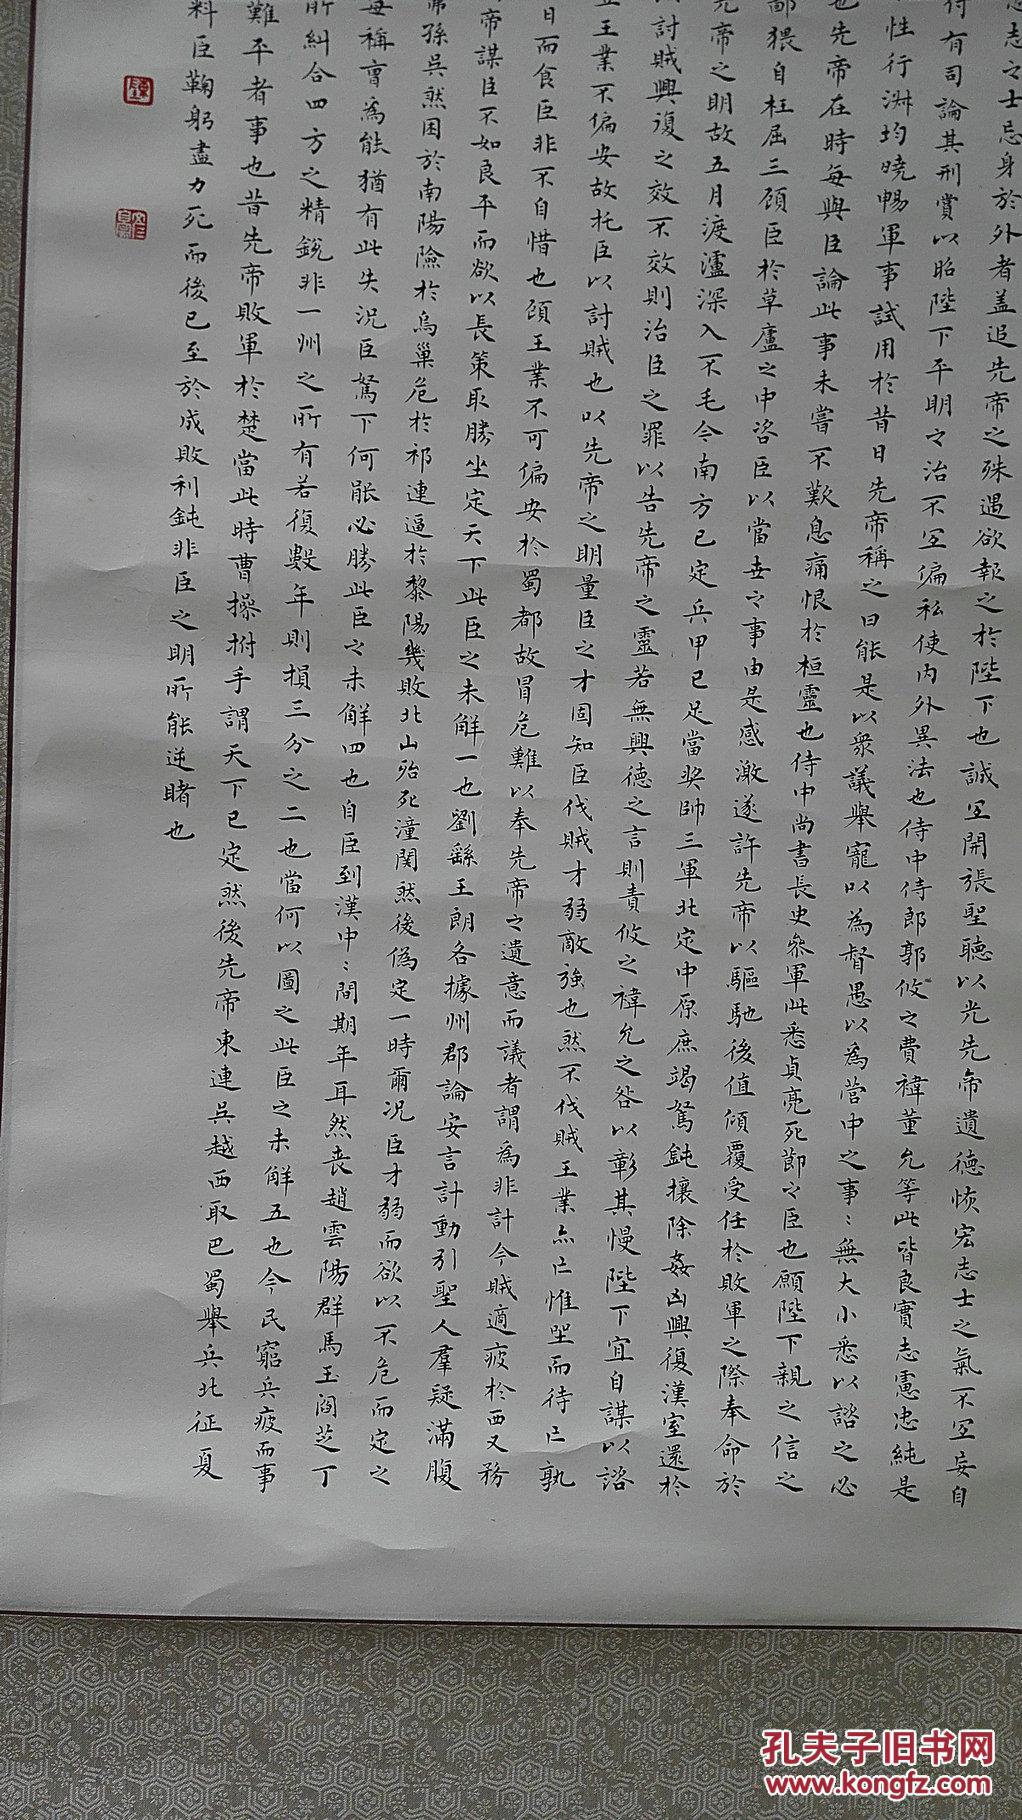 忠志之士忘身於外者盖追先帝之殊遇欲報之於陛下也誠宜開張聖聽以光先帝遺德恢宏志士之氣不宜妄自
付有司論其刑賞以昭陛下平明之治不宜偏私使内外異法也侍中侍郎郭攸之費禕董允等此皆良實志慮忠純是
性行淑均曉暢軍事試用於昔日先帝稱之曰能是以衆議舉寵以為督愚以為營中之事:無大小悉以諮之必
也先帝在時每與臣論此事未嘗不歎息痛恨於桓靈也侍中尚書長史參軍此悉貞亮死節之臣也願陛下親之信之
鄙猥自枉屈三顾臣於草廬之中咨臣以當世之事由是感激遂許先帝以驅馳後值傾覆受任於敗軍之際奉命於
先帝之明故五月渡瀘深入不毛今南方已定兵甲已足當奖帥三軍北定中原庶竭駑鈍攘除姦凶興復漢室還於
討賊興復之效不效則治臣之罪以告先帝之靈若無興德之言則責攸之禕允之咎以彰其慢陛下宜自謀以諮
立王業不偏安故托臣以討賊也以先帝之明量臣之才固知臣伐賊才弱敵強也然不伐賊王業亦亡惟坐而待亡孰
日而食臣非不自惜也顾王業不可偏安於蜀都故冒危難以奉先帝之遺意而議者謂為非計今賊適疲於西又務
帝謀臣不如良平而欲以長策取勝坐定天下此臣之未解一也劉繇王朗各據州郡論安言計動引聖人羣疑滿腹
孫吳然困於南陽險於烏巢危於祁連逼於黎陽幾敗北山殆死潼関然後偽定一時爾况臣才弱而欲以不危而定之
每稱曹為能猶有此失况臣駑下何能必勝此臣之未解四也自臣到漢中:間期年耳然丧趙雲陽群馬玉閻芝丁
所糾合四方之精銳非一州之所有若復數年則損三分之二也當何以圖之此臣之未解五也今民窮兵疲而事
難平者事也昔先帝敗軍於楚當此時曹操拊手謂天下已定然後先帝東連吳越西取巴蜀舉兵北征夏
料臣鞠躬盡力死而後已至於成敗利鈍非臣之明所能逆睹也
孔夫子旧书网
www.kongfz.com